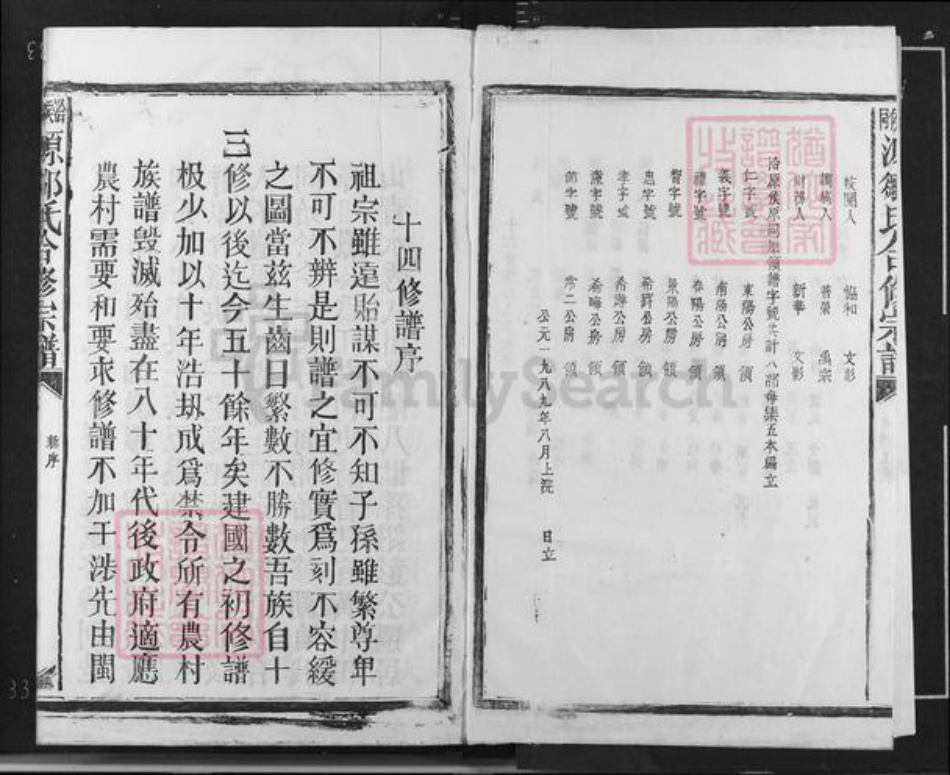 源鄒氏合修宗譜
校閱人 協和 文彩
撰稿人 善榮 禹宗
財務人 新華 文影
洽原族原同年領譜字號共計八部每集五本編立
仁字號 東陽公房 領
義字號 南陽公房 領
禮字號 春陽公房 領
智字號 景陽公房 領
忠字號 希爵公房 領
孝字號 公房 領
廉字號 希晦公房 領
節字號 常二公房 領
公元一九八九年八月上浣 日立
十四修譜序
祖宗雖遠貽謀不可不知子孫雖繁尊卑
不可不辨是則譜之宜修實爲刻不容緩
之圖當兹生齒日繁數不勝數吾族自十
三修以後迄今五十餘年矣建國之初修譜
极少加以十年浩刼成爲禁令所有農村
族譜毀滅殆盡在八十年代後政府適應
農村需要和要求修譜不加干涉先由閩
原鄒氏合修宗譜
新序
FamilySearch
33